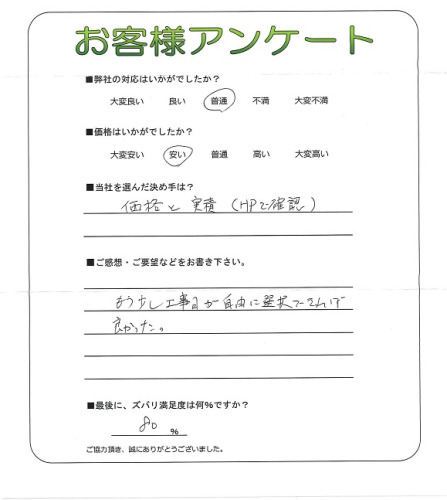 お客様アンケート
■弊社の対応はいかがでしたか?
大変良い 良い 普通 不満 大変不満
■価格はいかがでしたか?
大変安い 安い 普通 高い 大変高い
■当社を選んだ決め手は?
価格と実績(HPで確認)
■ご感想・ご要望などをお書き下さい。
もう少し工事日が自由に選択できれば
良かった。
■最後に、ズバリ満足度は何%ですか?
80 %
ご協力頂き、誠にありがとうございました。